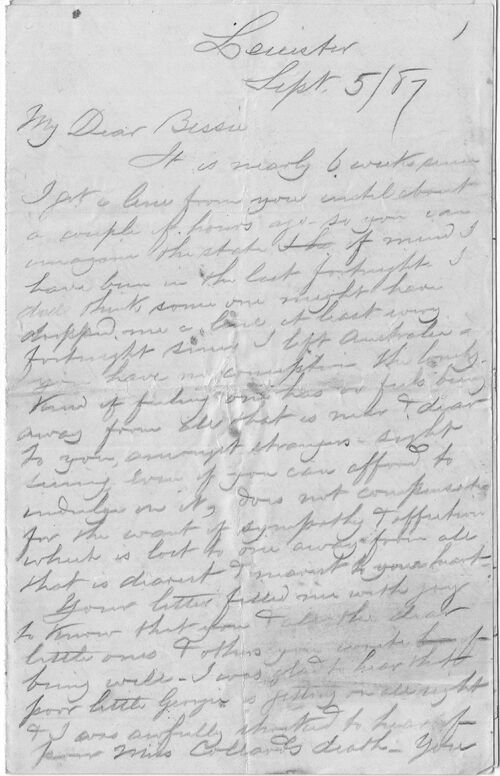 Leinster
Sept. 5/87
My Dear Bessie
It is nearly 6 weeks since
I got a line from you until about
a couple of hours ago - so you can
imagine the state of mind I
have been in the last fortnight I
did think some one might have
dropped me a line at least every
fortnight since I left Australia -
you have no conception the lonely
kind of feeling one has or feels being
away from all that is near & dear
to you, amongst strangers - sight
seeing even if you can afford to
indulge in it, does not compensate
for the want of sympathy & affection
which is lost to one away from all
that is dearest & nearest to your heart -
Your letter filled me with joy
to know that you & all the dear
little ones & others you wrote of
being well - I was glad to hear that
poor little Georgie is getting on all right
& I was awfully shocked to hear of
poor Miss Collard's death - You